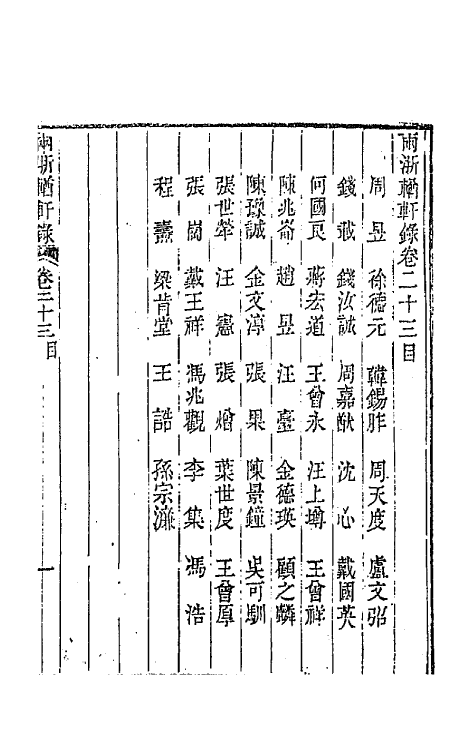 兩浙輶軒錄卷二十三目
周昱 徐德元 韓錫胙 周天度 盧文弨
錢載 錢汝誠 周嘉猷 沈心 戴國英
何國艮 蔣宏道 王曾永 汪上墫 王曾祥
陳兆崙 趙昱 汪臺 金德瑛 顧之麟
陳豫誠 金文淳 張果 陳景鐘 吳可馴
張世犖 汪憲 張熷 葉世度 王曾厚
張崗 戴王祥 馮兆觀 李集 馮浩
程燾 梁肯堂 王誥 孫宗濂
兩浙輶軒錄 卷二十三目 一